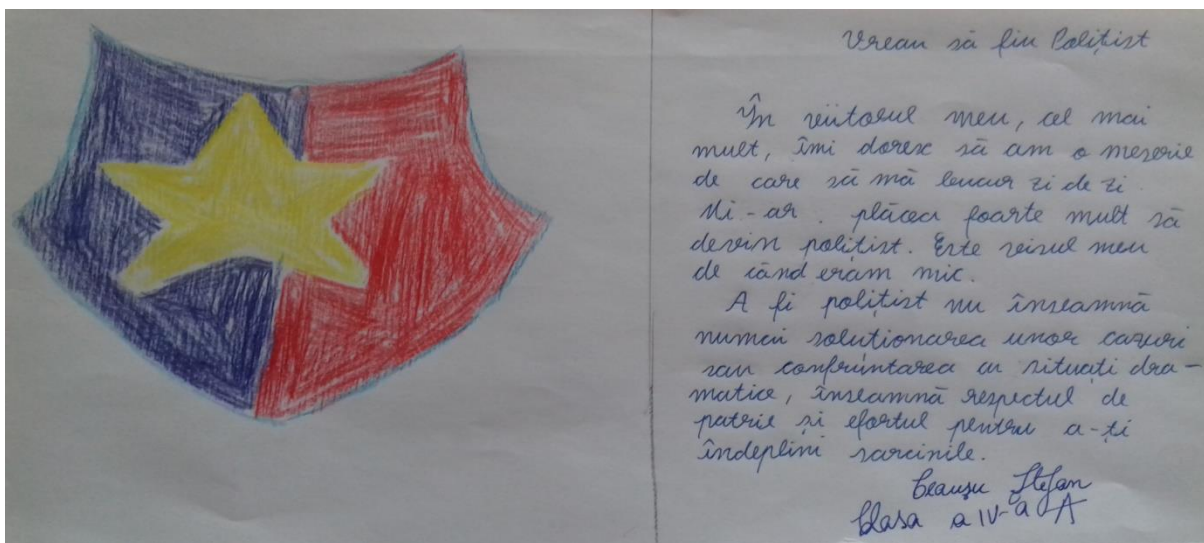 Vreau să fiu Polițist
În viitorul meu, cel mai
mult, îmi doresc să am o meserie
de care să mă bucur zi de zi.
Mi-ar plăcea foarte mult să
devin polițist. Este visul meu
de când eram mic.
A fi polițist nu înseamnă
numai soluționarea unor cazuri
sau confruntarea cu situați dra-
matice, înseamnă respectul de
patrie și efortul pentru a-ți
îndeplini sarcinile.
Ștefan
Clasa a IV-a A